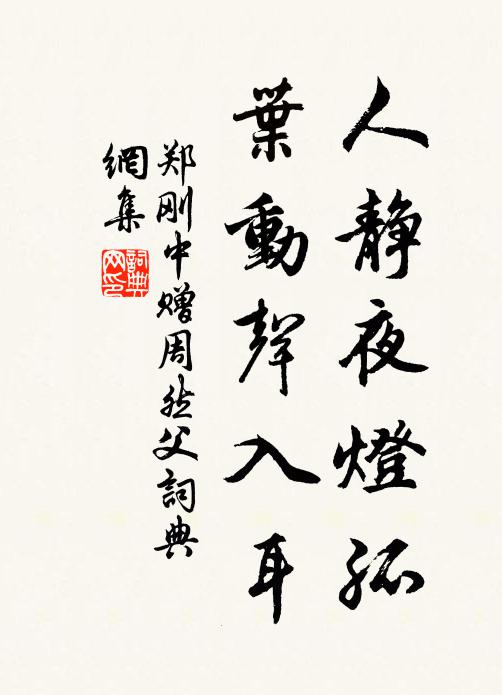 人静夜燈孤
葉動聲入耳
郑刚中赠周然父詞典
網集
詞典网印